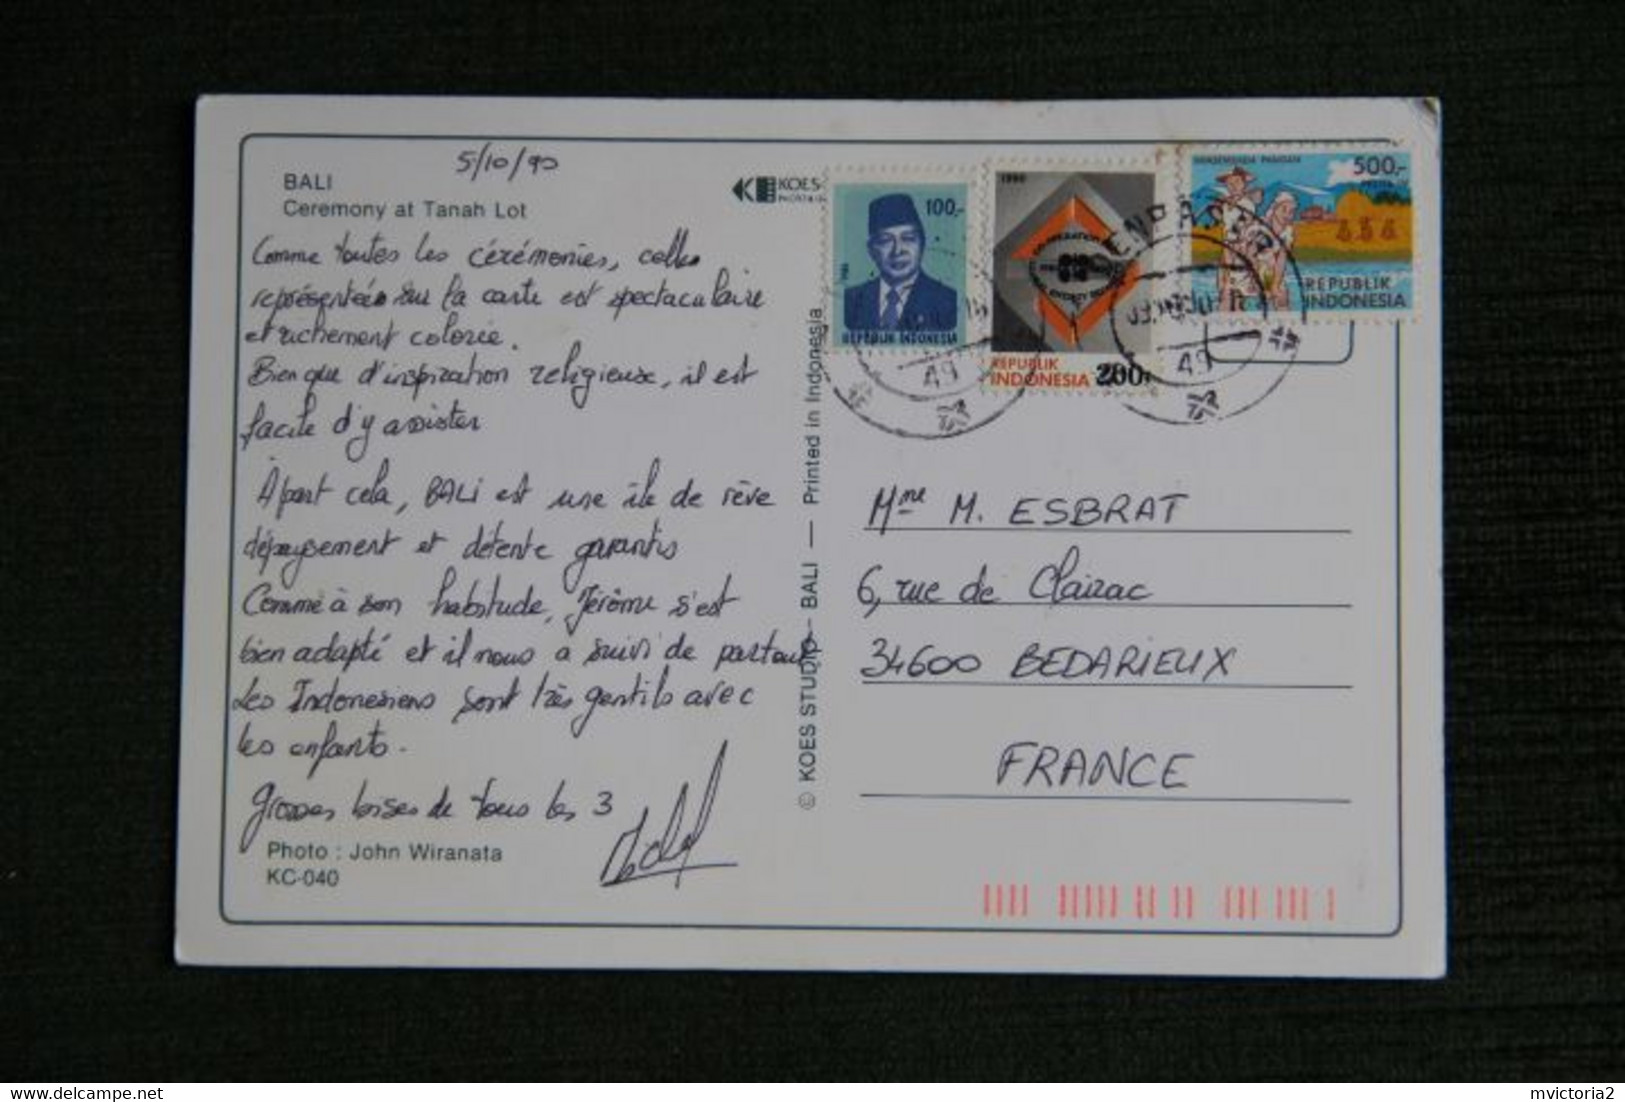 5/10/90
BALI
Ceremony at Tanah Lot
KOES
Comme toutes les cérémonies, celles
représentées sur la carte est spectaculaire
et richement colorée.
Bien que d'inspiration religieuse, il est
facile d'y assister
A part cela, BALI est une île de rêve
dépaysement et détente garantis
Comme à son habitude, Jérôme s'est
bien adapté et il nous a suivi de partout
Les Indonésiens sont très gentils avec
les enfants.
Grosses bises de tous les 3
Photo : John Wiranata
KC-040
© KOES STUDIO — BALI — Printed in Indonesia
100,-
1983
REPUBLIK INDONESIA
1990
REPUBLIK
INDONESIA 200,-
500,-
REPUBLIK
INDONESIA
DENPASAR
49
49
Mme M. ESBRAT
6, rue de Clairac
34600 BEDARIEUX
FRANCE
mvictoria2